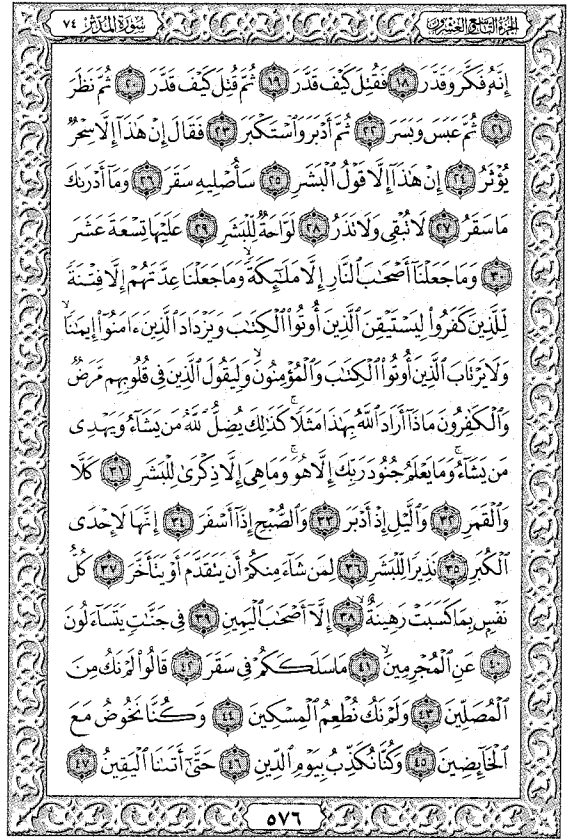 سُورَةُ المُدَّثِّرِ ٧٤
الجُزْءُ التَّاسِعُ وَالعِشْرُونَ
إِنَّهُۥ فَكَّرَ وَقَدَّرَ ١٨ فَقُتِلَ كَيْفَ قَدَّرَ ١٩ ثُمَّ قُتِلَ كَيْفَ قَدَّرَ ٢٠ ثُمَّ نَظَرَ
٢١ ثُمَّ عَبَسَ وَبَسَرَ ٢٢ ثُمَّ أَدْبَرَ وَٱسْتَكْبَرَ ٢٣ فَقَالَ إِنْ هَٰذَآ إِلَّا سِحْرٌ
يُؤْثَرُ ٢٤ إِنْ هَٰذَآ إِلَّا قَوْلُ ٱلْبَشَرِ ٢٥ سَأُصْلِيهِ سَقَرَ ٢٦ وَمَآ أَدْرَىٰكَ
مَا سَقَرُ ٢٧ لَا تُبْقِى وَلَا تَذَرُ ٢٨ لَوَّاحَةٌ لِّلْبَشَرِ ٢٩ عَلَيْهَا تِسْعَةَ عَشَرَ
٣٠ وَمَا جَعَلْنَآ أَصْحَٰبَ ٱلنَّارِ إِلَّا مَلَٰٓئِكَةً ۙ وَمَا جَعَلْنَا عِدَّتَهُمْ إِلَّا فِتْنَةً
لِّلَّذِينَ كَفَرُوا۟ لِيَسْتَيْقِنَ ٱلَّذِينَ أُوتُوا۟ ٱلْكِتَٰبَ وَيَزْدَادَ ٱلَّذِينَ ءَامَنُوٓا۟ إِيمَٰنًا ۙ
وَلَا يَرْتَابَ ٱلَّذِينَ أُوتُوا۟ ٱلْكِتَٰبَ وَٱلْمُؤْمِنُونَ ۙ وَلِيَقُولَ ٱلَّذِينَ فِى قُلُوبِهِم مَّرَضٌ
وَٱلْكَٰفِرُونَ مَاذَآ أَرَادَ ٱللَّهُ بِهَٰذَا مَثَلًا ۚ كَذَٰلِكَ يُضِلُّ ٱللَّهُ مَن يَشَآءُ وَيَهْدِى
مَن يَشَآءُ ۚ وَمَا يَعْلَمُ جُنُودَ رَبِّكَ إِلَّا هُوَ ۚ وَمَا هِىَ إِلَّا ذِكْرَىٰ لِلْبَشَرِ ٣١ كَلَّا
وَٱلْقَمَرِ ٣٢ وَٱلَّيْلِ إِذْ أَدْبَرَ ٣٣ وَٱلصُّبْحِ إِذَآ أَسْفَرَ ٣٤ إِنَّهَا لَإِحْدَى
ٱلْكُبَرِ ٣٥ نَذِيرًا لِّلْبَشَرِ ٣٦ لِمَن شَآءَ مِنكُمْ أَن يَتَقَدَّمَ أَوْ يَتَأَخَّرَ ٣٧ كُلُّ
نَفْسٍۭ بِمَا كَسَبَتْ رَهِينَةٌ ٣٨ إِلَّآ أَصْحَٰبَ ٱلْيَمِينِ ٣٩ فِى جَنَّٰتٍ يَتَسَآءَلُونَ
٤٠ عَنِ ٱلْمُجْرِمِينَ ٤١ مَا سَلَكَكُمْ فِى سَقَرَ ٤٢ قَالُوا۟ لَمْ نَكُ مِنَ
ٱلْمُصَلِّينَ ٤٣ وَلَمْ نَكُ نُطْعِمُ ٱلْمِسْكِينَ ٤٤ وَكُنَّا نَخُوضُ مَعَ
ٱلْخَآئِضِينَ ٤٥ وَكُنَّا نُكَذِّبُ بِيَوْمِ ٱلدِّينِ ٤٦ حَتَّىٰٓ أَتَىٰنَا ٱلْيَقِينُ ٤٧
٥٧٦